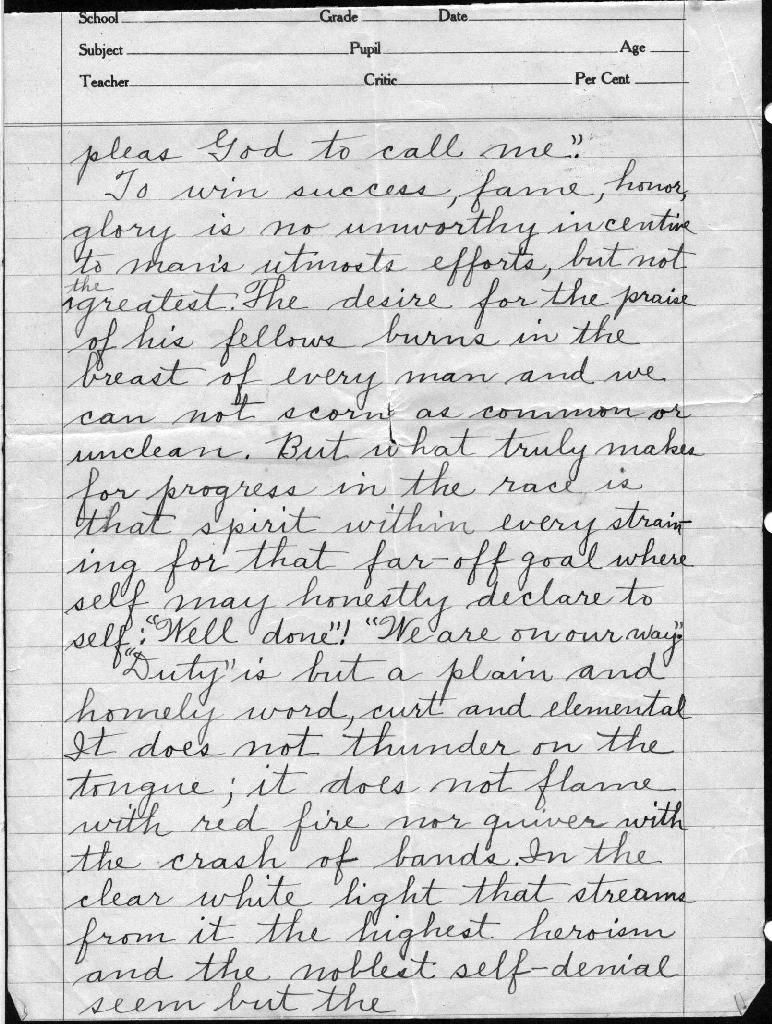 School Grade Date
Subject Pupil Age
Teacher Critic Per Cent
pleas God to call me."
To win success, fame, honor,
glory is no unworthy incentive
to man's utmosts efforts, but not
the
greatest. The desire for the praise
of his fellows burns in the
breast of every man and we
can not scorn as common or
unclean. But what truly makes
for progress in the race is
that spirit within every strain-
ing for that far-off goal where
self may honestly declare to
self: "Well done"! "We are on our way."
"Duty" is but a plain and
homely word, curt and elemental
It does not thunder on the
tongue; it does not flame
with red fire nor quiver with
the crash of bands. In the
clear white light that streams
from it the highest heroism
and the noblest self-denial
seem but the